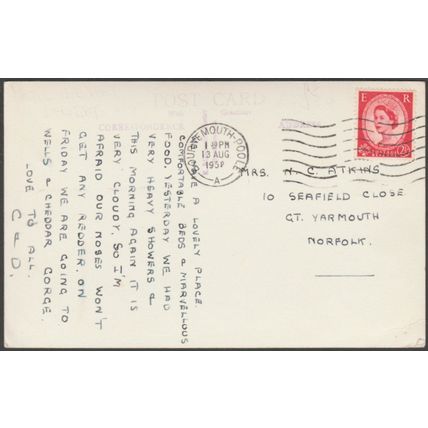 POST CARD
CORRESPONDENCE
ADDRESS
BOURNEMOUTH-POOLE
PM
13 AUG
A
E R
2½
MRS. N. C. ATKINS
10 SEAFIELD CLOSE
GT. YARMOUTH
NORFOLK.
A LOVELY PLACE.
COMFORTABLE BEDS & MARVELLOUS
FOOD. YESTERDAY WE HAD
VERY HEAVY SHOWERS &
THIS MORNING AGAIN IT IS
VERY CLOUDY, SO I'M
AFRAID OUR NOSES WON'T
GET ANY REDDER. ON
FRIDAY WE ARE GOING TO
WELLS & CHEDDAR GORGE.
LOVE TO ALL.
C & D.